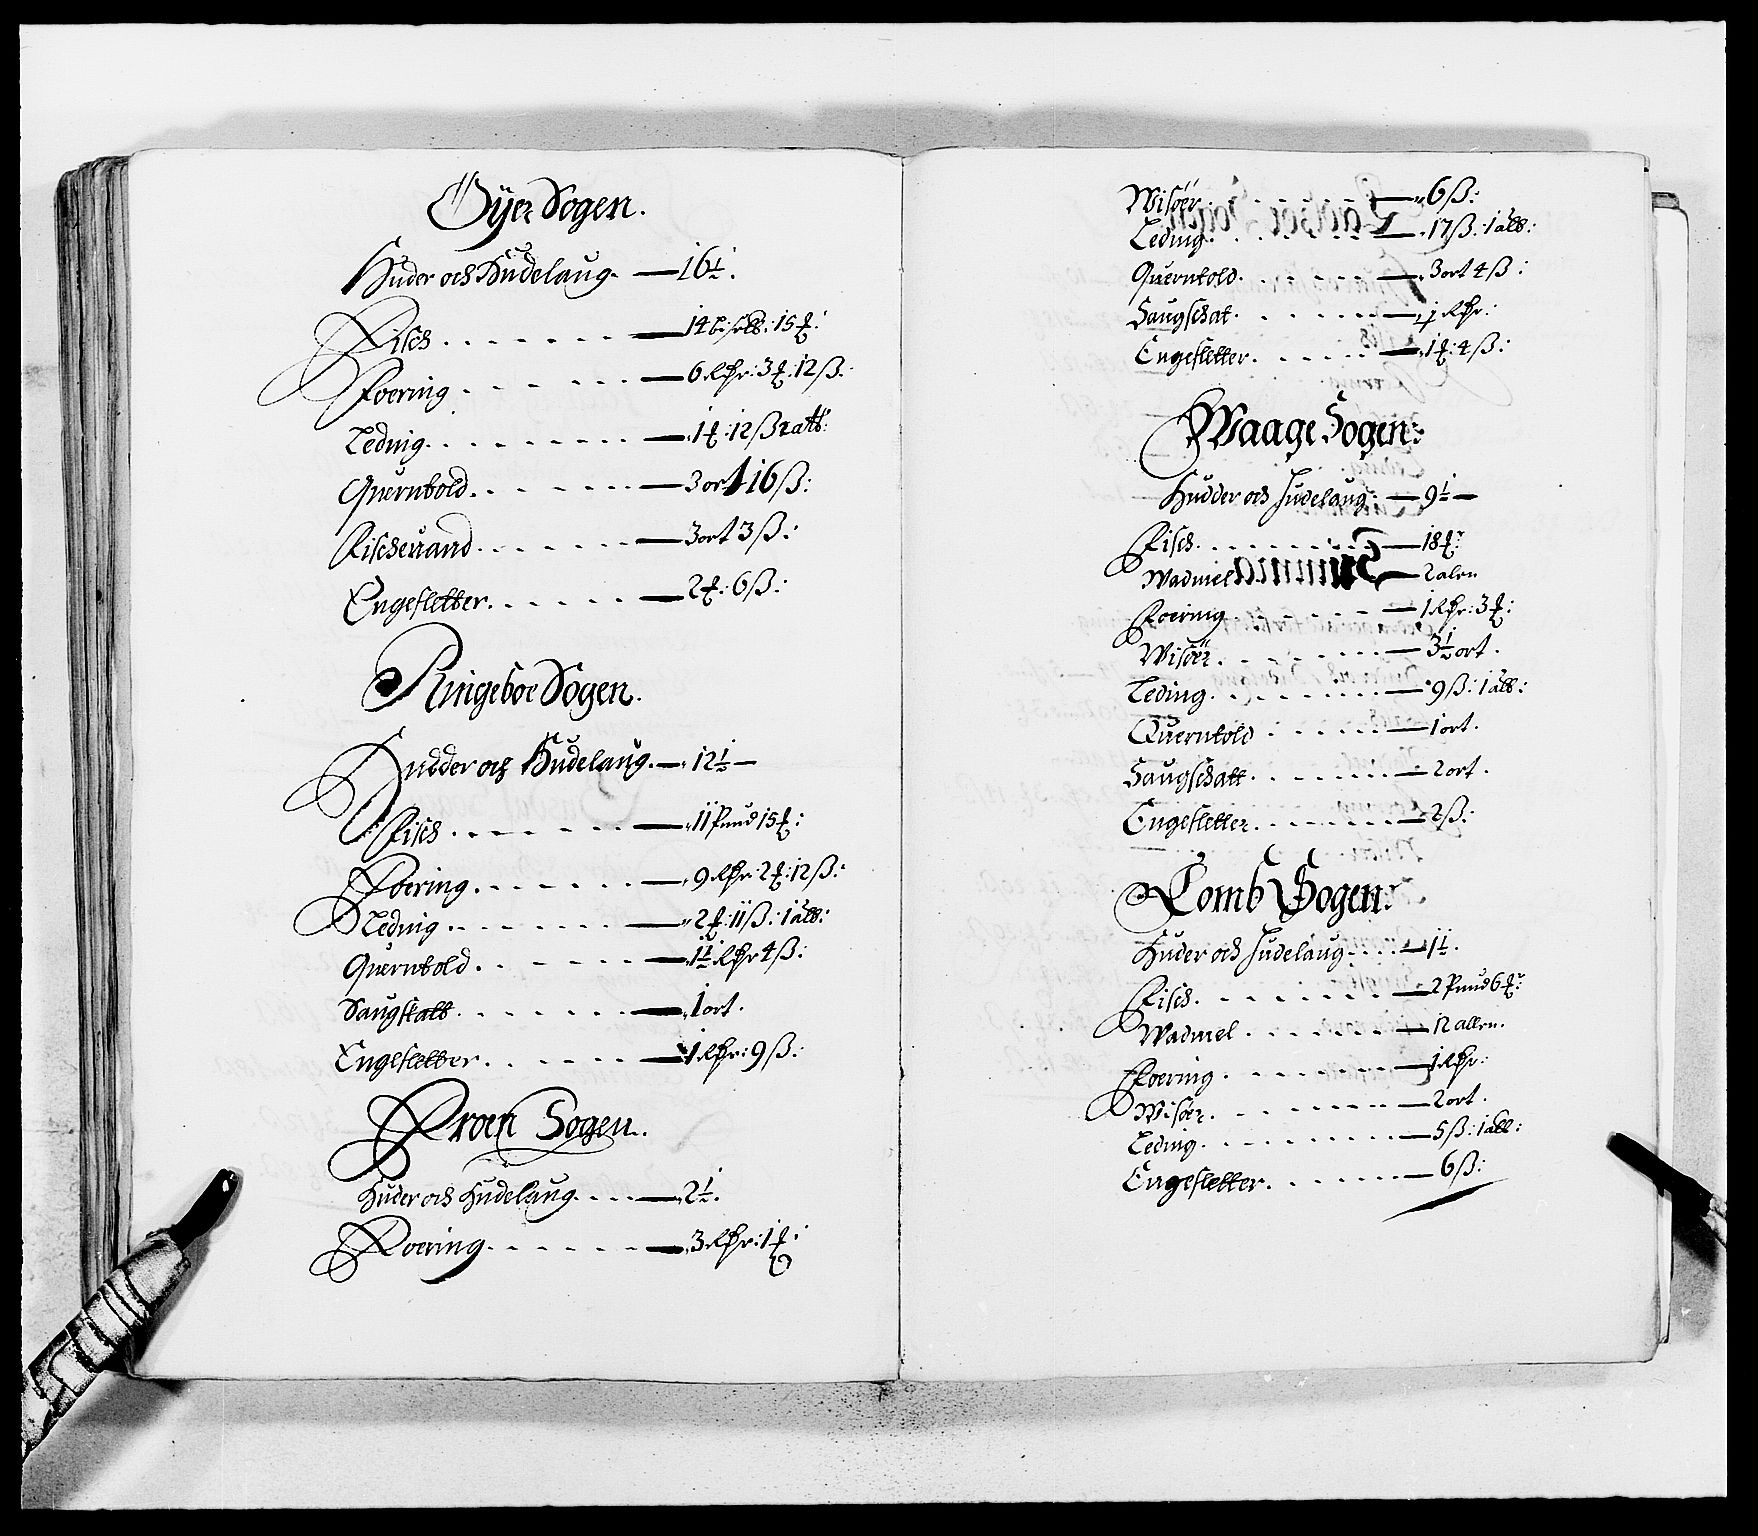 Öÿer Sogen.
Huder och Hudelaug. — 16½.
Fisch . . . . . . . — 14 b: 15 ℔:
Foering . . . . . . — 6 Rdr: 3 ℔: 12 ß:
Leding. . . . . . . — 1 ℔: 12 ß 2 alb:
Querntold. . . . . . — 3 ort 16 ß:
Fischeuand. . . . . . — 3 ort 3 ß:
Engesletter. . . . . . — 2 ℔: 6 ß:
Ringeboe Sogen.
Hudder och Hudelaug. — 12½ —
Fisch . . . . . . . — 11 Pund 15 ℔:
Foering. . . . . . . — 9 Rdr: 2 ℔: 12 ß:
Leding . . . . . . . — 2 ℔: 11 ß: 1 alb:
Querntold . . . . . . — 1½ Rdr 4 ß:
Saugskatt. . . . . . . — 1 ort.
Engesletter. . . . . . — 1 Rdr: 9 ß:
Froen Sogen.
Huder och Hudelaug. . . . — 2½.
Foering. . . . . . . — 3 Rdr: 1 ℔:
Wisöer. . . . . . . — 6 ß:
Leding. . . . . . . — 17 ß: 1 alb:
Querntold. . . . . . — 3 ort 4 ß:
Saugschat. . . . . . — 1 Rdr:
Engesletter. . . . . . — 1 ℔: 4 ß:
Waage Sogen:
Hudder och Hudelaug. — 9½ —
Fisch. . . . . . . . — 18 ℔:
Wadmel — 2 alen
Foering . . . . . . — 1 Rdr: 3 ℔:
Wisöer. . . . . . . — 3½ ort.
Leding. . . . . . . — 9 ß: 1 alb:
Querntold . . . . . . — 1 ort.
Saugschatt. . . . . . — 2 ort.
Engesletter. . . . . . — 2 ß:
Lomb Sogen:
Huder och Hudelaug. . . . — 1½.
Fisch. . . . . . . — 2 Pund 6 ℔:
Wadmel . . . . . . — 12 allen.
Foering . . . . . . — 1 Rdr:
Wisöer. . . . . . . — 2 ort.
Leding. . . . . . . — 5 ß: 1 alb:
Engesletter. . . . . . — 6 ß: